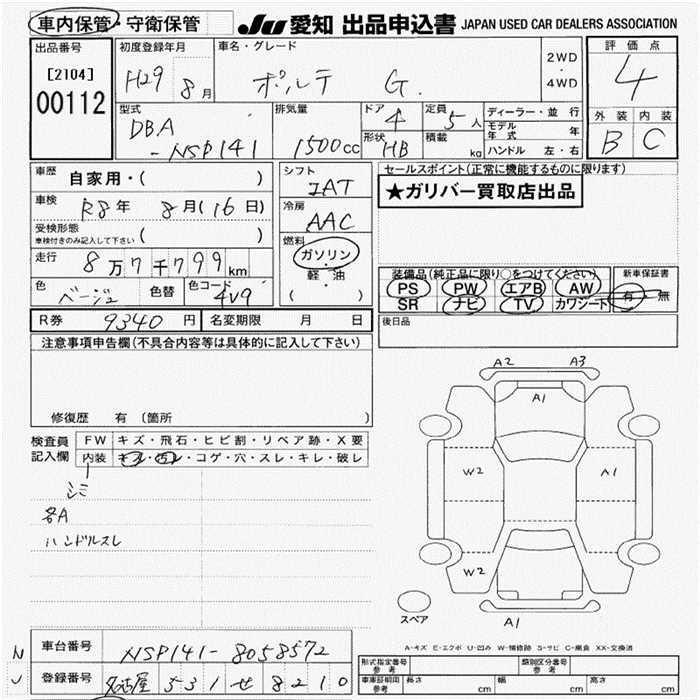 車内保管・守衛保管 JU 愛知 出品申込書 JAPAN USED CAR DEALERS ASSOCIATION
出品番号 初度登録年月 車名・グレード 評価点
[2104] H29 8月 ポルテ G. 2WD 4WD 4
00112
型式 排気量 ドア 4 定員 5人 ディーラー・並行 外装 内装
DBA モデル年式 年 B C
-NSP141 1500cc 形状 HB 積載 kg ハンドル 左・右
車歴 自家用・( ) シフト セールスポイント(正常に機能するものに限ります)
IAT ★ガリバー買取店出品
車検 R8年 8月(16日) 冷房
受検形態 AAC
車検付きのみ記入して下さい ( )
走行 8万7千799km 燃料 ガソリン・軽油 ( )
装備品(純正品に限り○をつけてください) 新車保証書
色 ベージュ 色替 色コード 4V9 PS PW エアB AW 有・無
SR ナビ TV カワシート
R券 9340円 名変期限 月 日 後日品
注意事項申告欄(不具合内容等は具体的に記入して下さい)
A2 A3
A1
修復歴 有 〔箇所 〕
検査員記入欄 FW キズ・飛石・ヒビ割・リペア跡・X要
内装 キズ・汚レ・コゲ・穴・スレ・キレ・破レ
W2 A1
シミ
各A
ハンドルスレ
W2
スペア A1
A-キズ E-エクボ U-凹み W-補修跡 S-サビ C-腐食 XX-交換済
N 車台番号 NSP141-8058572
J 登録番号 名古屋 531 せ 8210
形式指定番号 参考 類別区分番号 参考
車庫証明用 参考 長さ cm 幅 cm 高さ cm